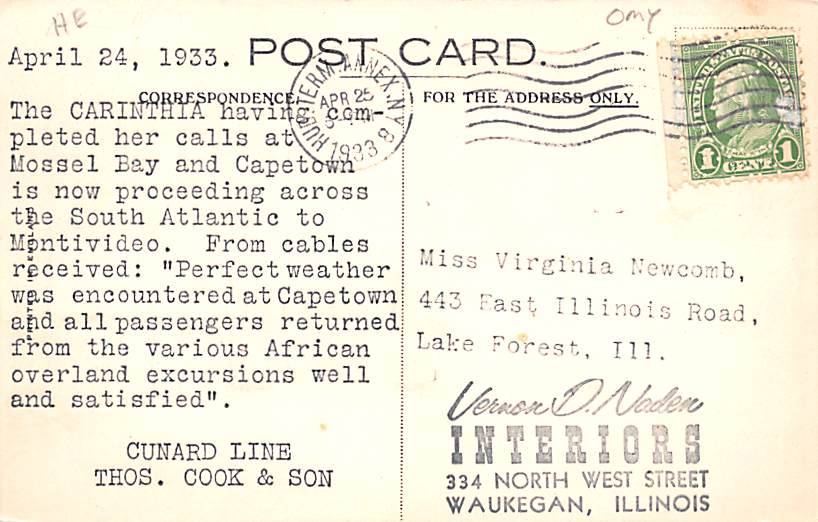 HE
OMY
April 24, 1933.
POST CARD.
CORRESPONDENCE.
FOR THE ADDRESS ONLY.
HUD. TERM. ANNEX. N.Y.
APR 25
1933
8
The CARINTHIA having com-
pleted her calls at
Mossel Bay and Capetown
is now proceeding across
the South Atlantic to
Montivideo. From cables
received: "Perfect weather
was encountered at Capetown
and all passengers returned
from the various African
overland excursions well
and satisfied".
CUNARD LINE
THOS. COOK & SON
1 CENT 1
Miss Virginia Newcomb,
443 East Illinois Road,
Lake Forest, Ill.
Vernon D. Naden
INTERIORS
334 NORTH WEST STREET
WAUKEGAN, ILLINOIS